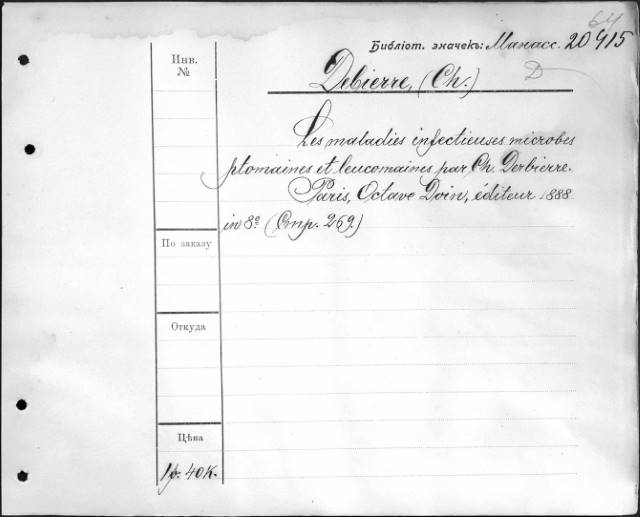 64
Библіот. значекъ: Манасс. 20415
Инв.
№
Debierre, (Ch.)
D
Les maladies infectieuses microbes
ptomaines et leucomaines par Ch. Derbierre.
Paris, Octave Doin, éditeur 1888
in 8º (Стр. 269.)
По заказу
Откуда
Цѣна
1р. 40к.